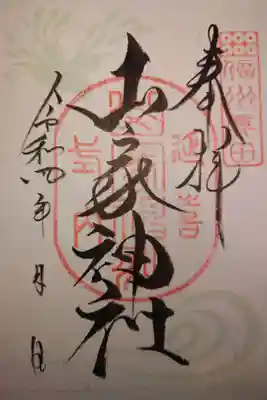 信州真田
奉拝
山家神社
令和四年 月 日